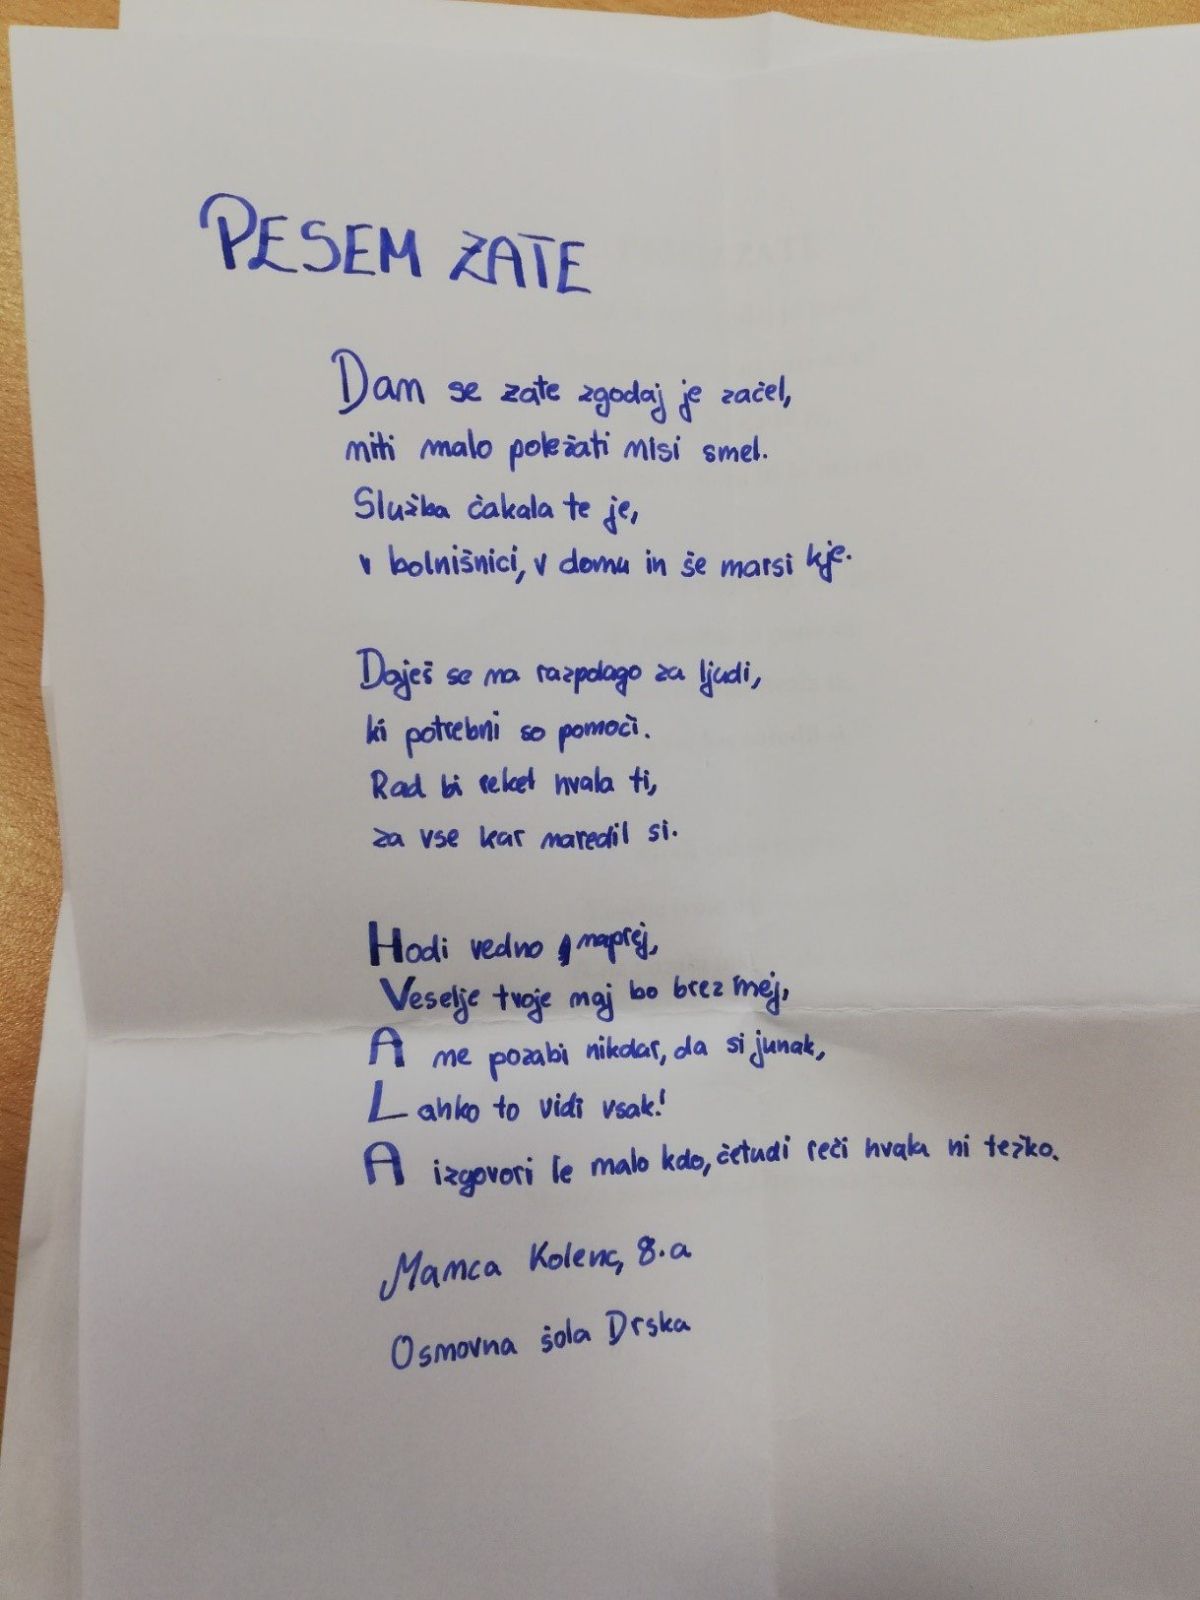 PESEM ZATE
Dan se zate zgodaj je začel,
niti malo poležati nisi smel.
Služba čakala te je,
v bolnišnici, v domu in še marsi kje.
Daješ se na razpolago za ljudi,
ki potrebni so pomoči.
Rad bi rekel hvala ti,
za vse kar naredil si.
Hodi vedno naprej,
Veselje tvoje naj bo brez mej,
A ne pozabi nikdar, da si junak,
Lahko to vidi vsak!
A izgovori le malo kdo, četudi reči hvala ni težko.
Manca Kolenc, 8.a
Osnovna šola Drska